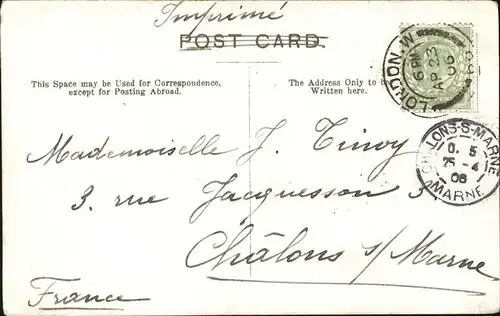 Imprimé
POST CARD.
LONDON. W.
6 PM
AP 23
06
This Space may be Used for Correspondence,
except for Posting Abroad.
The Address Only to be
Written here.
CHALONS-S-MARNE
25 - 4
06
MARNE
Mademoiselle J. Tinoy
3, rue Jacquesson 3
Châlons s/Marne
France